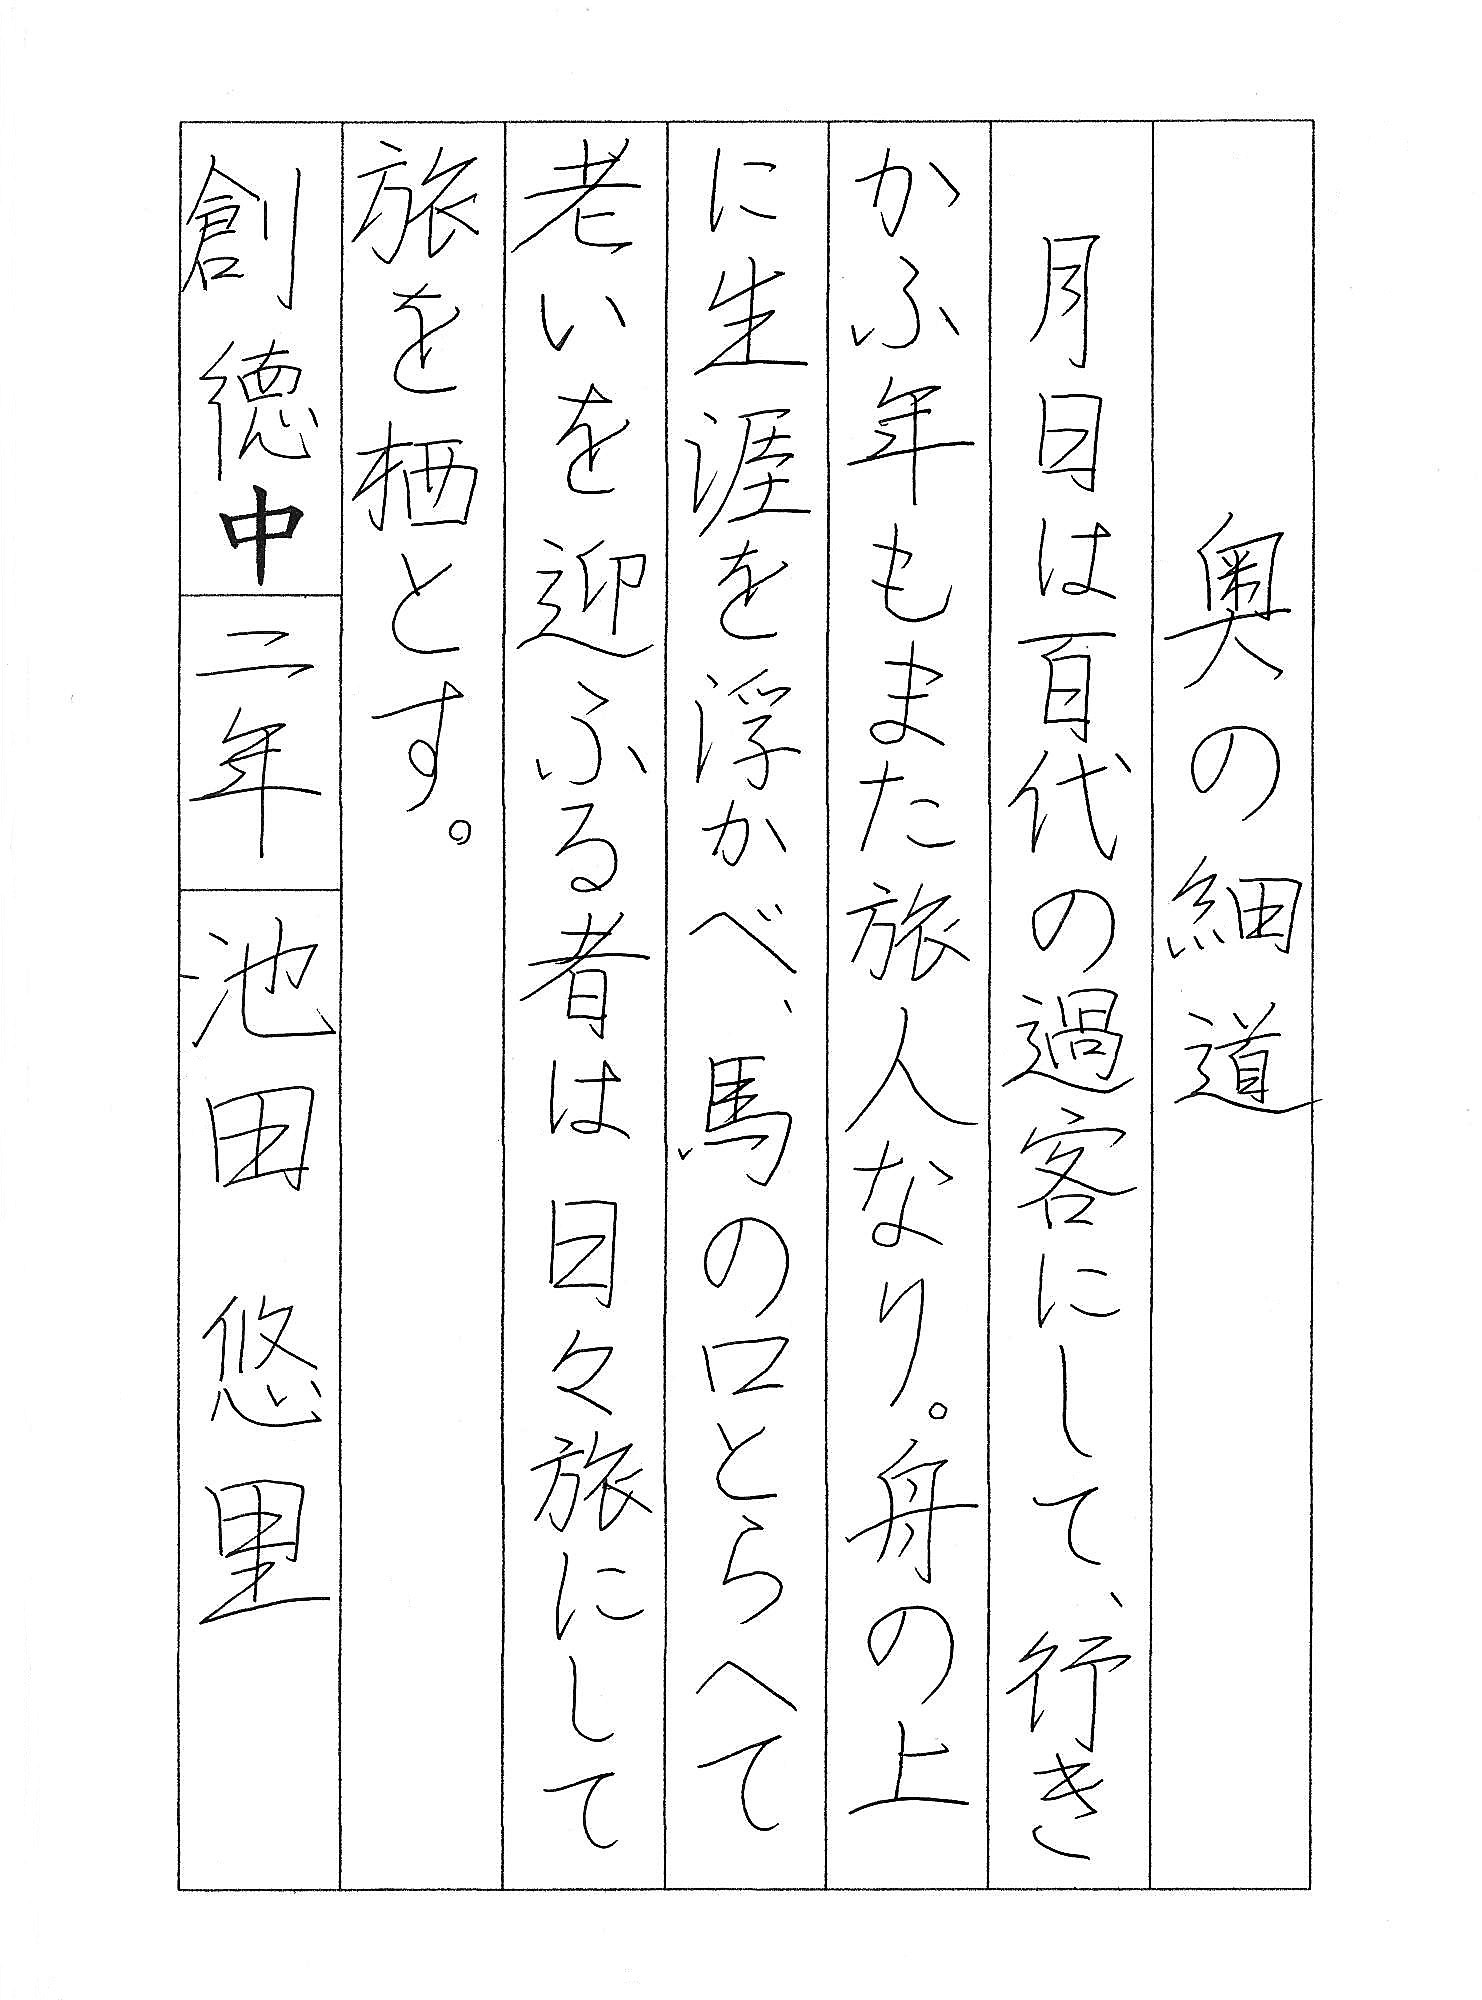 奥の細道
月日は百代の過客にして、行き
かふ年もまた旅人なり。舟の上
に生涯を浮かべ、馬の口とらへて
老いを迎ふる者は日々旅にして
旅を栖とす。
創徳中 二年 池田 悠里